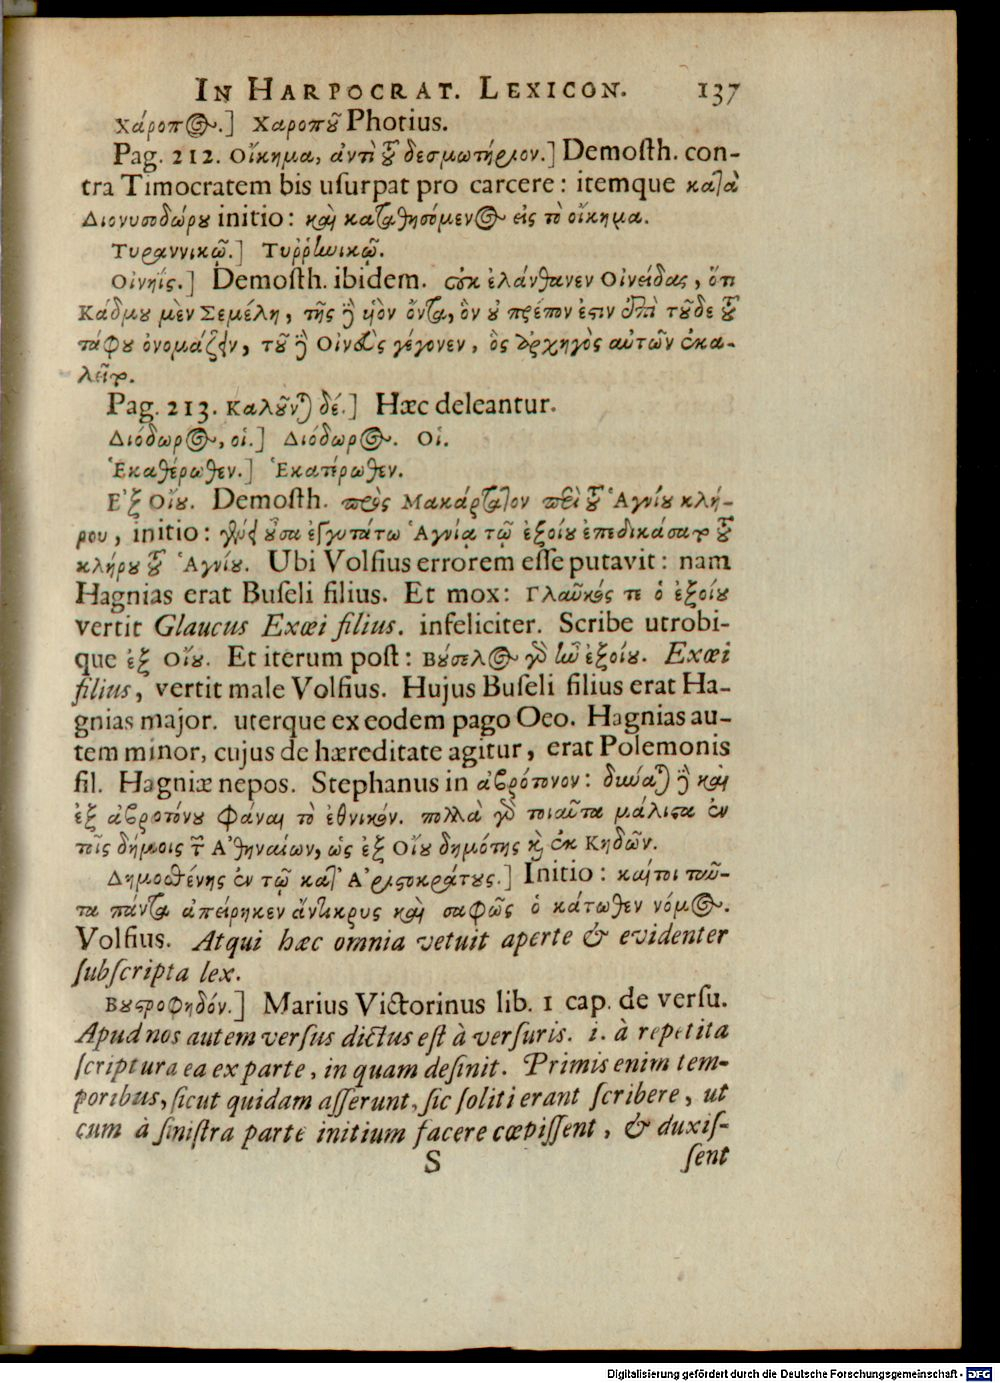 IN HARPOCRAT. LEXICON. 137
Χάροπος.] Χαροποῦ Photius.
Pag. 212. Οἴκημα, ἀντὶ τοῦ δεσμωτήριον.] Demosth. con-
tra Timocratem bis usurpat pro carcere: itemque κατὰ
Διονυσοδώρου initio: καὶ καταθησόμενος εἰς τὸ οἴκημα.
Τυραννικῷ.] Τυῤῥηνικῷ.
Οἰνηΐς.] Demosth. ibidem. οὐκ ἐλάνθανεν Οἰνείδας, ὅτι
Κάδμου μὲν Σεμέλη, τῆς δὲ υἱὸν ὄντα, ὃν οὐ πρέπον ἐστιν ἐπὶ τοῦδε τοῦ
τάφου ὀνομάζειν, τοῦ δὲ Οἰνεὺς γέγονεν, ὃς ἀρχηγὸς αὐτῶν ἐκα-
λεῖτο.
Pag. 213. Καλοῦνται δέ.] Hæc deleantur.
Διόδωρος, οἱ.] Διόδωρος. Οἱ.
Ἑκαθέρωθεν.] Ἑκατέρωθεν.
Ἐξ Οἴου. Demosth. πρὸς Μακάρτατον περὶ τοῦ Ἁγνίου κλή-
ρου, initio: γένει οὖσα ἐγγυτάτω Ἁγνίᾳ τῷ ἐξοίου ἐπεδικάσατο τοῦ
κλήρου τοῦ Ἁγνίου. Ubi Volfius errorem esse putavit: nam
Hagnias erat Buseli filius. Et mox: Γλαῦκός τε ὁ ἐξοίου
vertit Glaucus Exœi filius. infeliciter. Scribe utrobi-
que ἐξ Οἴου. Et iterum post: Βούσελος γὸ ἦν ἐξοίου. Exœi
filius, vertit male Volfius. Hujus Buseli filius erat Ha-
gnias major. uterque ex eodem pago Oeo. Hagnias au-
tem minor, cujus de hæreditate agitur, erat Polemonis
fil. Hagniæ nepos. Stephanus in ἀβρότονον: δύναται δὲ καὶ
ἐξ ἀβροτόνου φάναι τὸ ἐθνικόν. πολλὰ γὸ τοιαῦτα μάλιστα ἐν
τοῖς δήμοις τῶν Ἀθηναίων, ὡς ἐξ Οἴου δημότης καὶ ἐκ Κηδῶν.
Δημοσθένης ἐν τῷ κατ' Ἀριστοκράτους.] Initio: καίτοι ταῦ-
τα πάντα ἀπείρηκεν ἄντικρυς καὶ σαφῶς ὁ κάτωθεν νόμος.
Volfius. Atqui hæc omnia vetuit aperte & evidenter
subscripta lex.
Βουστροφηδόν.] Marius Victorinus lib. 1 cap. de versu.
Apud nos autem versus dictus est à versuris. i. à repetita
scriptura ea ex parte, in quam desinit. Primis enim tem-
poribus, sicut quidam asserunt, sic soliti erant scribere, ut
cum à sinistra parte initium facere cœpissent, & duxis-
S sent
Digitalisierung gefördert durch die Deutsche Forschungsgemeinschaft - DFG